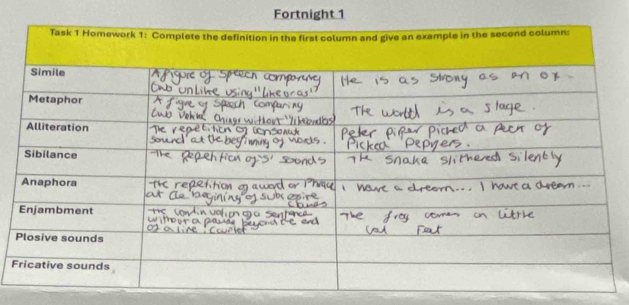 Fortnight 1
Task 1 Homework 1: Complete the definition in the first column and give an example in the second column:
Simile
A figure of speech comparing
two unlike using "like or as"
He is as strong as an ox.
Metaphor
A figure of speech comparing
two unlike things without
The world is a stage.
Alliteration
The repetition of consonant
sound at the beginning of words.
Peter Piper Picked a peck of
Picked Peppers.
Sibilance
The repetition of 's' sounds
The snake slithered silently
Anaphora
The repetition of a word or Phrase
at the begining of
clauses
I have a dream... I have a dream...
Enjambment
The continuation of a sentence
without a pause beyond the end
of a line. couplet
The frog comes on little
cat Feet
Plosive sounds
Fricative sounds